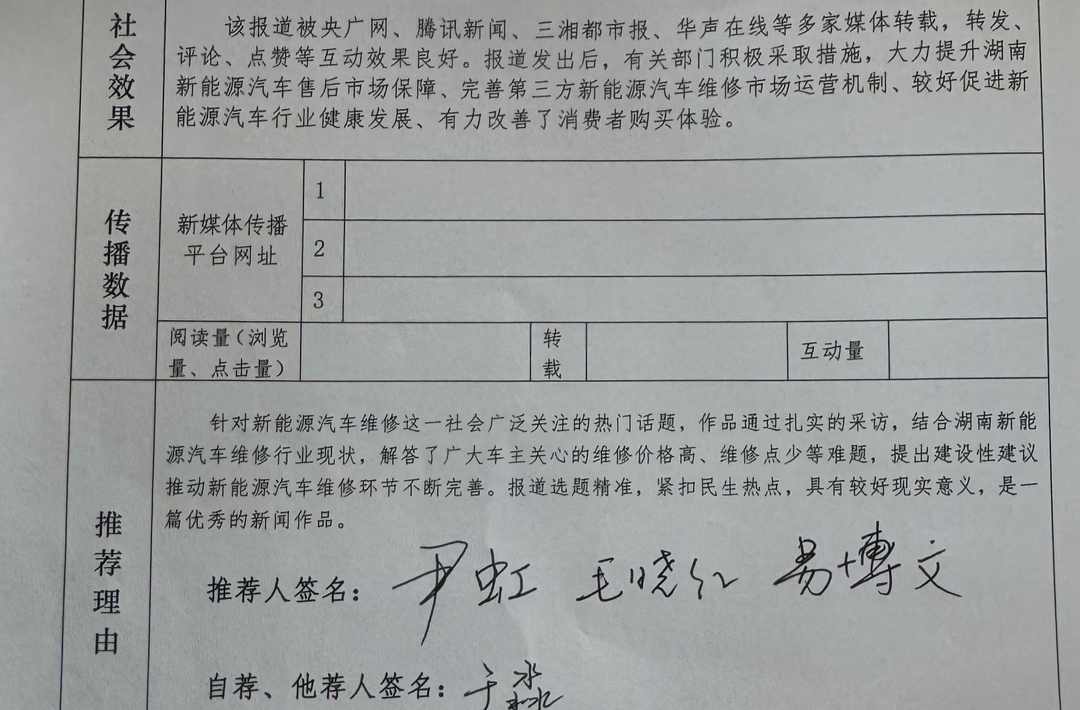 社会效果
该报道被央广网、腾讯新闻、三湘都市报、华声在线等多家媒体转载，转发、
评论、点赞等互动效果良好。报道发出后，有关部门积极采取措施，大力提升湖南
新能源汽车售后市场保障、完善第三方新能源汽车维修市场运营机制、较好促进新
能源汽车行业健康发展、有力改善了消费者购买体验。
传播数据
新媒体传播
平台网址
1
2
3
阅读量（浏览
量、点击量）
转
载
互动量
推荐理由
针对新能源汽车维修这一社会广泛关注的热门话题，作品通过扎实的采访，结合湖南新能
源汽车维修行业现状，解答了广大车主关心的维修价格高、维修点少等难题，提出建设性建议
推动新能源汽车维修环节不断完善。报道选题精准，紧扣民生热点，具有较好现实意义，是一
篇优秀的新闻作品。
推荐人签名：尹虹 毛晓红 易博文
自荐、他荐人签名：于淼